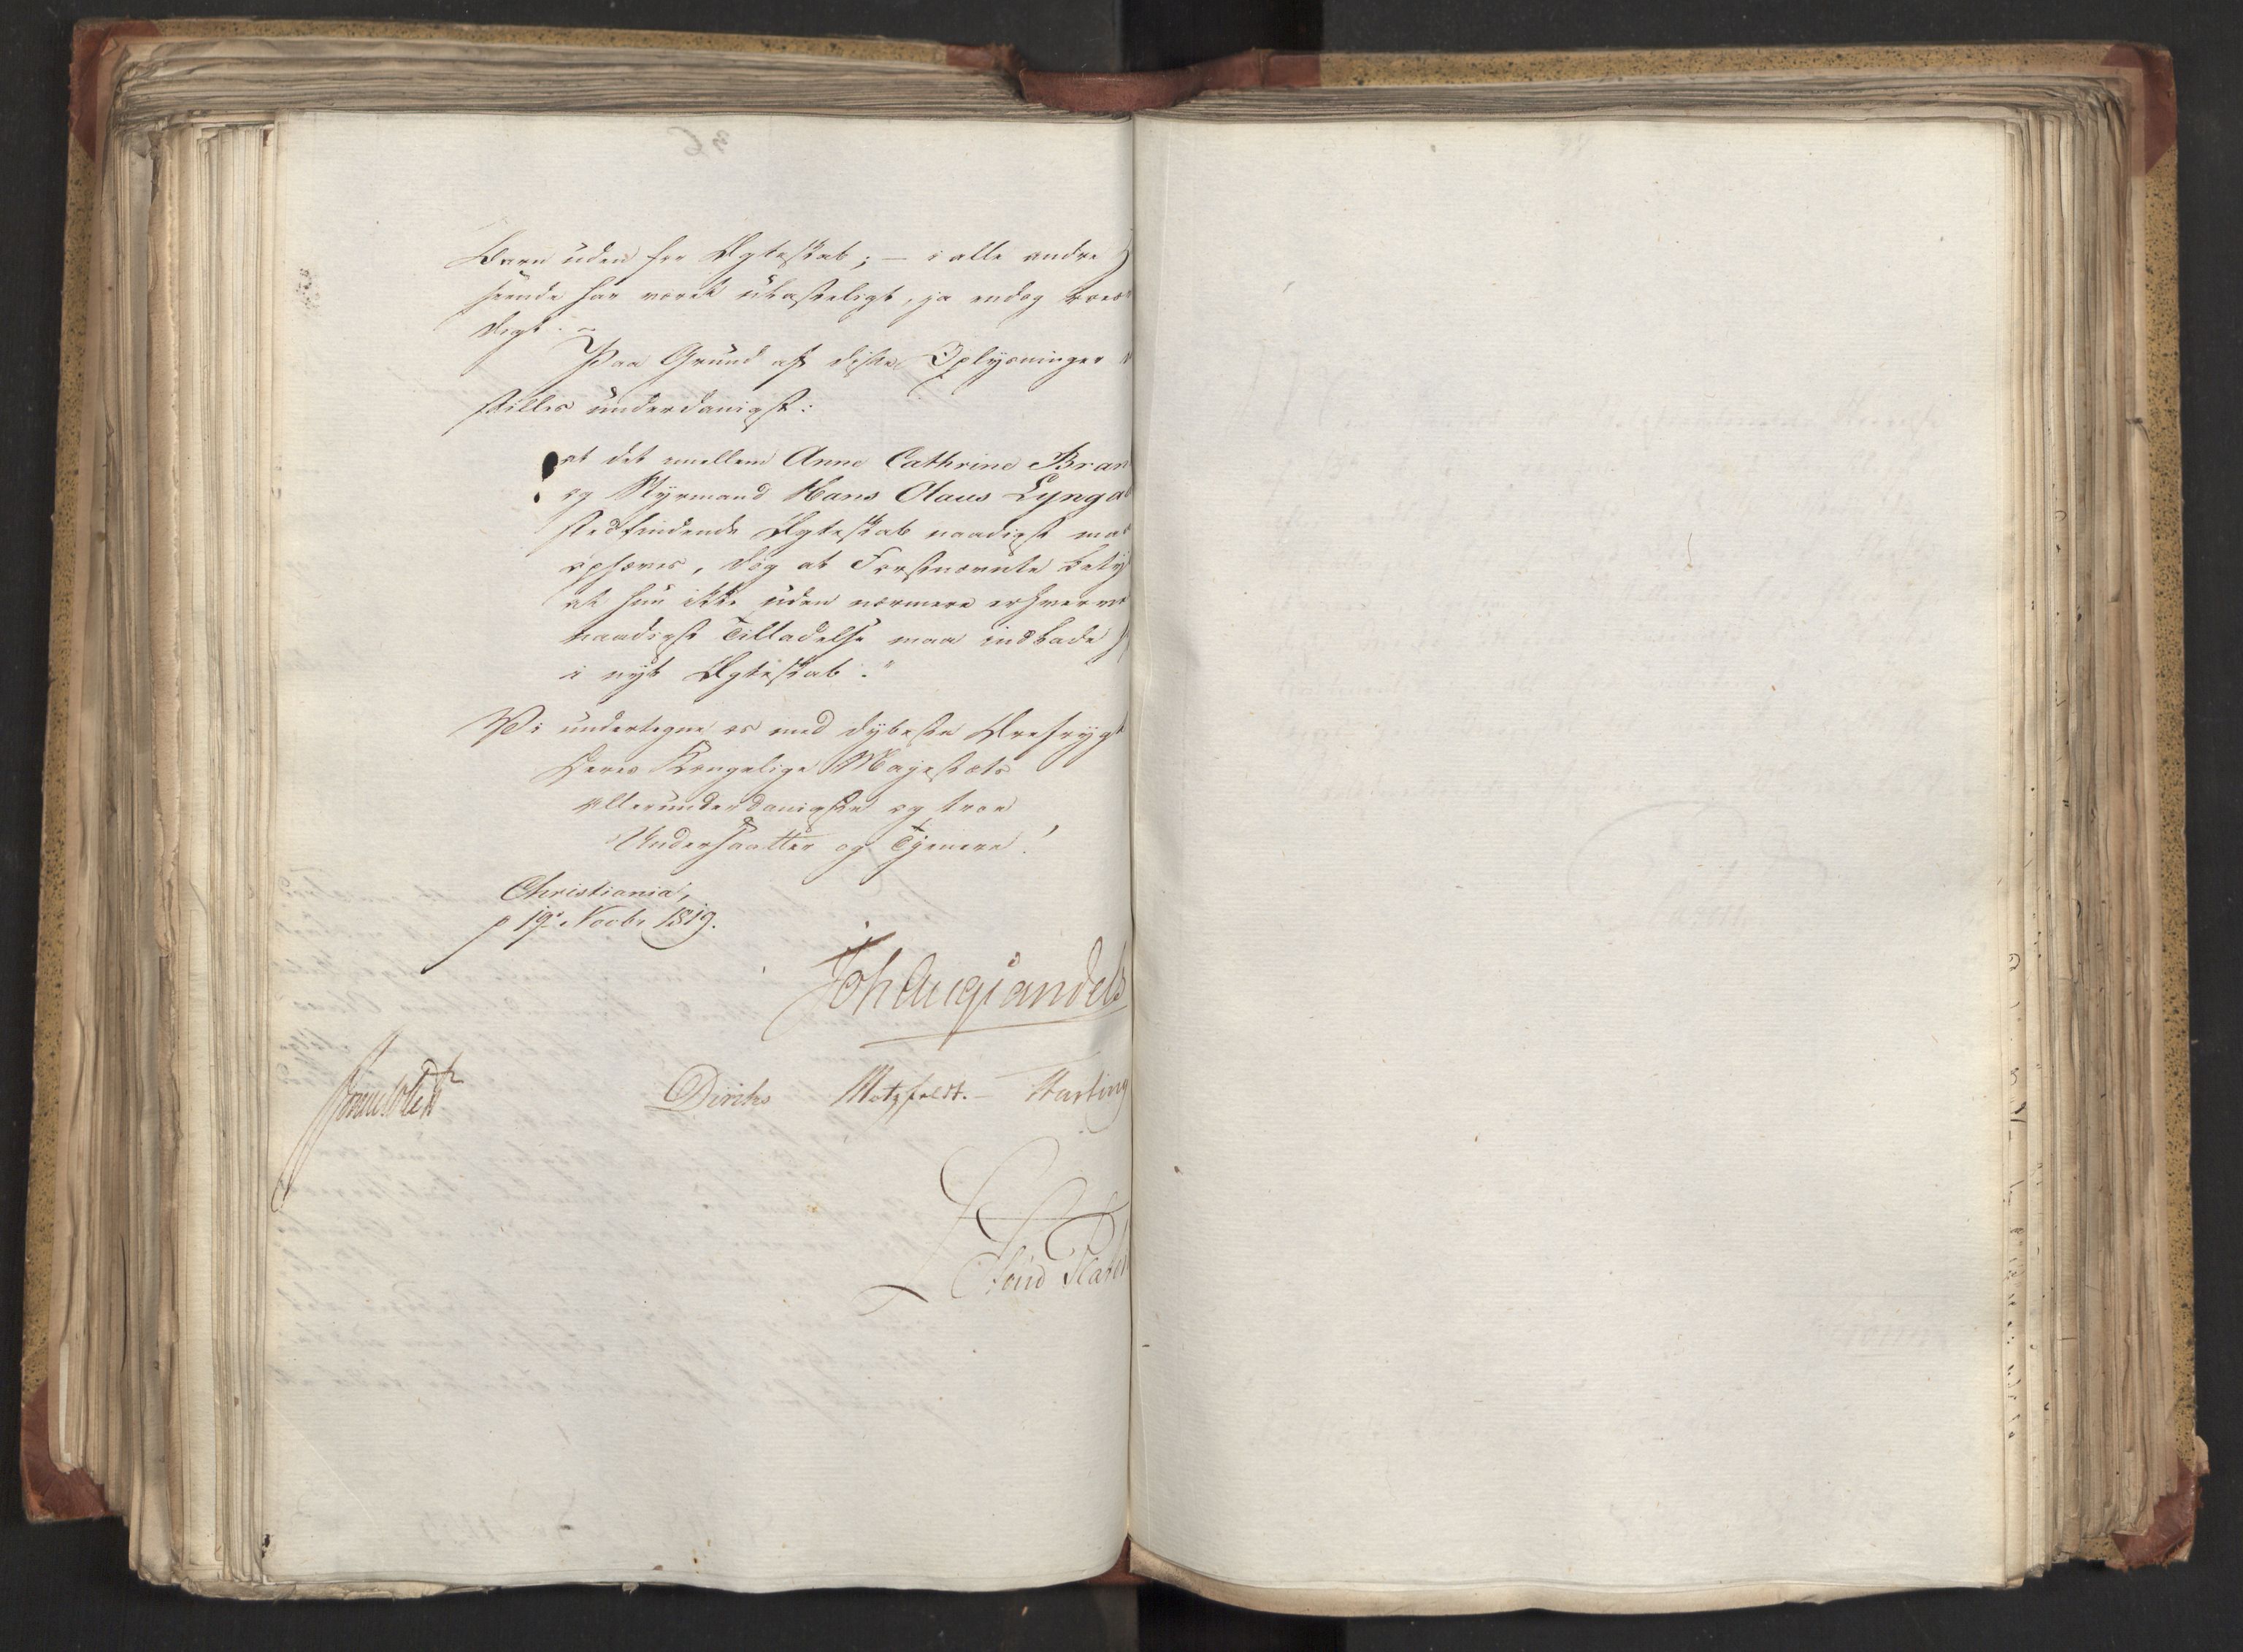 Barn uden for Ægteskab; – i alle andre
seende har været ulasteligt, ja endog
digt. –
Paa Grund af disse Oplysninger
stilles underdanigst:
at det mellem Anne Cathrine Bran
og Styrmand Hans Olaus Lynga
stedfindende Ægteskab naadigst maa
ophæves, dog at Førstnævnte bety
at hun ikke uden nærmere erhverve
naadigst Tilladelse maa indlade
i nyt Ægteskab."
Vi undertegne os med dybeste Ærefrygt
Deres Kongelige Majestæts
allerunderdanigste og troe
Undersaatter og Tjenere!
Christiania,
p 19de Novbr 1819.
Joh Aug Sandels
Sommerhielm
Diriks Motzfeldt. – Fasting